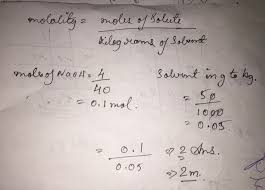 molality = moles of Solute
Kilograms of Solvent
moles of NaOH = 4
40
= 0.1 mol.
Solvent in g to kg.
= 50
1000
= 0.05.
= 0.1
0.05
⇒ 2 Ans.
⇒ 2m.